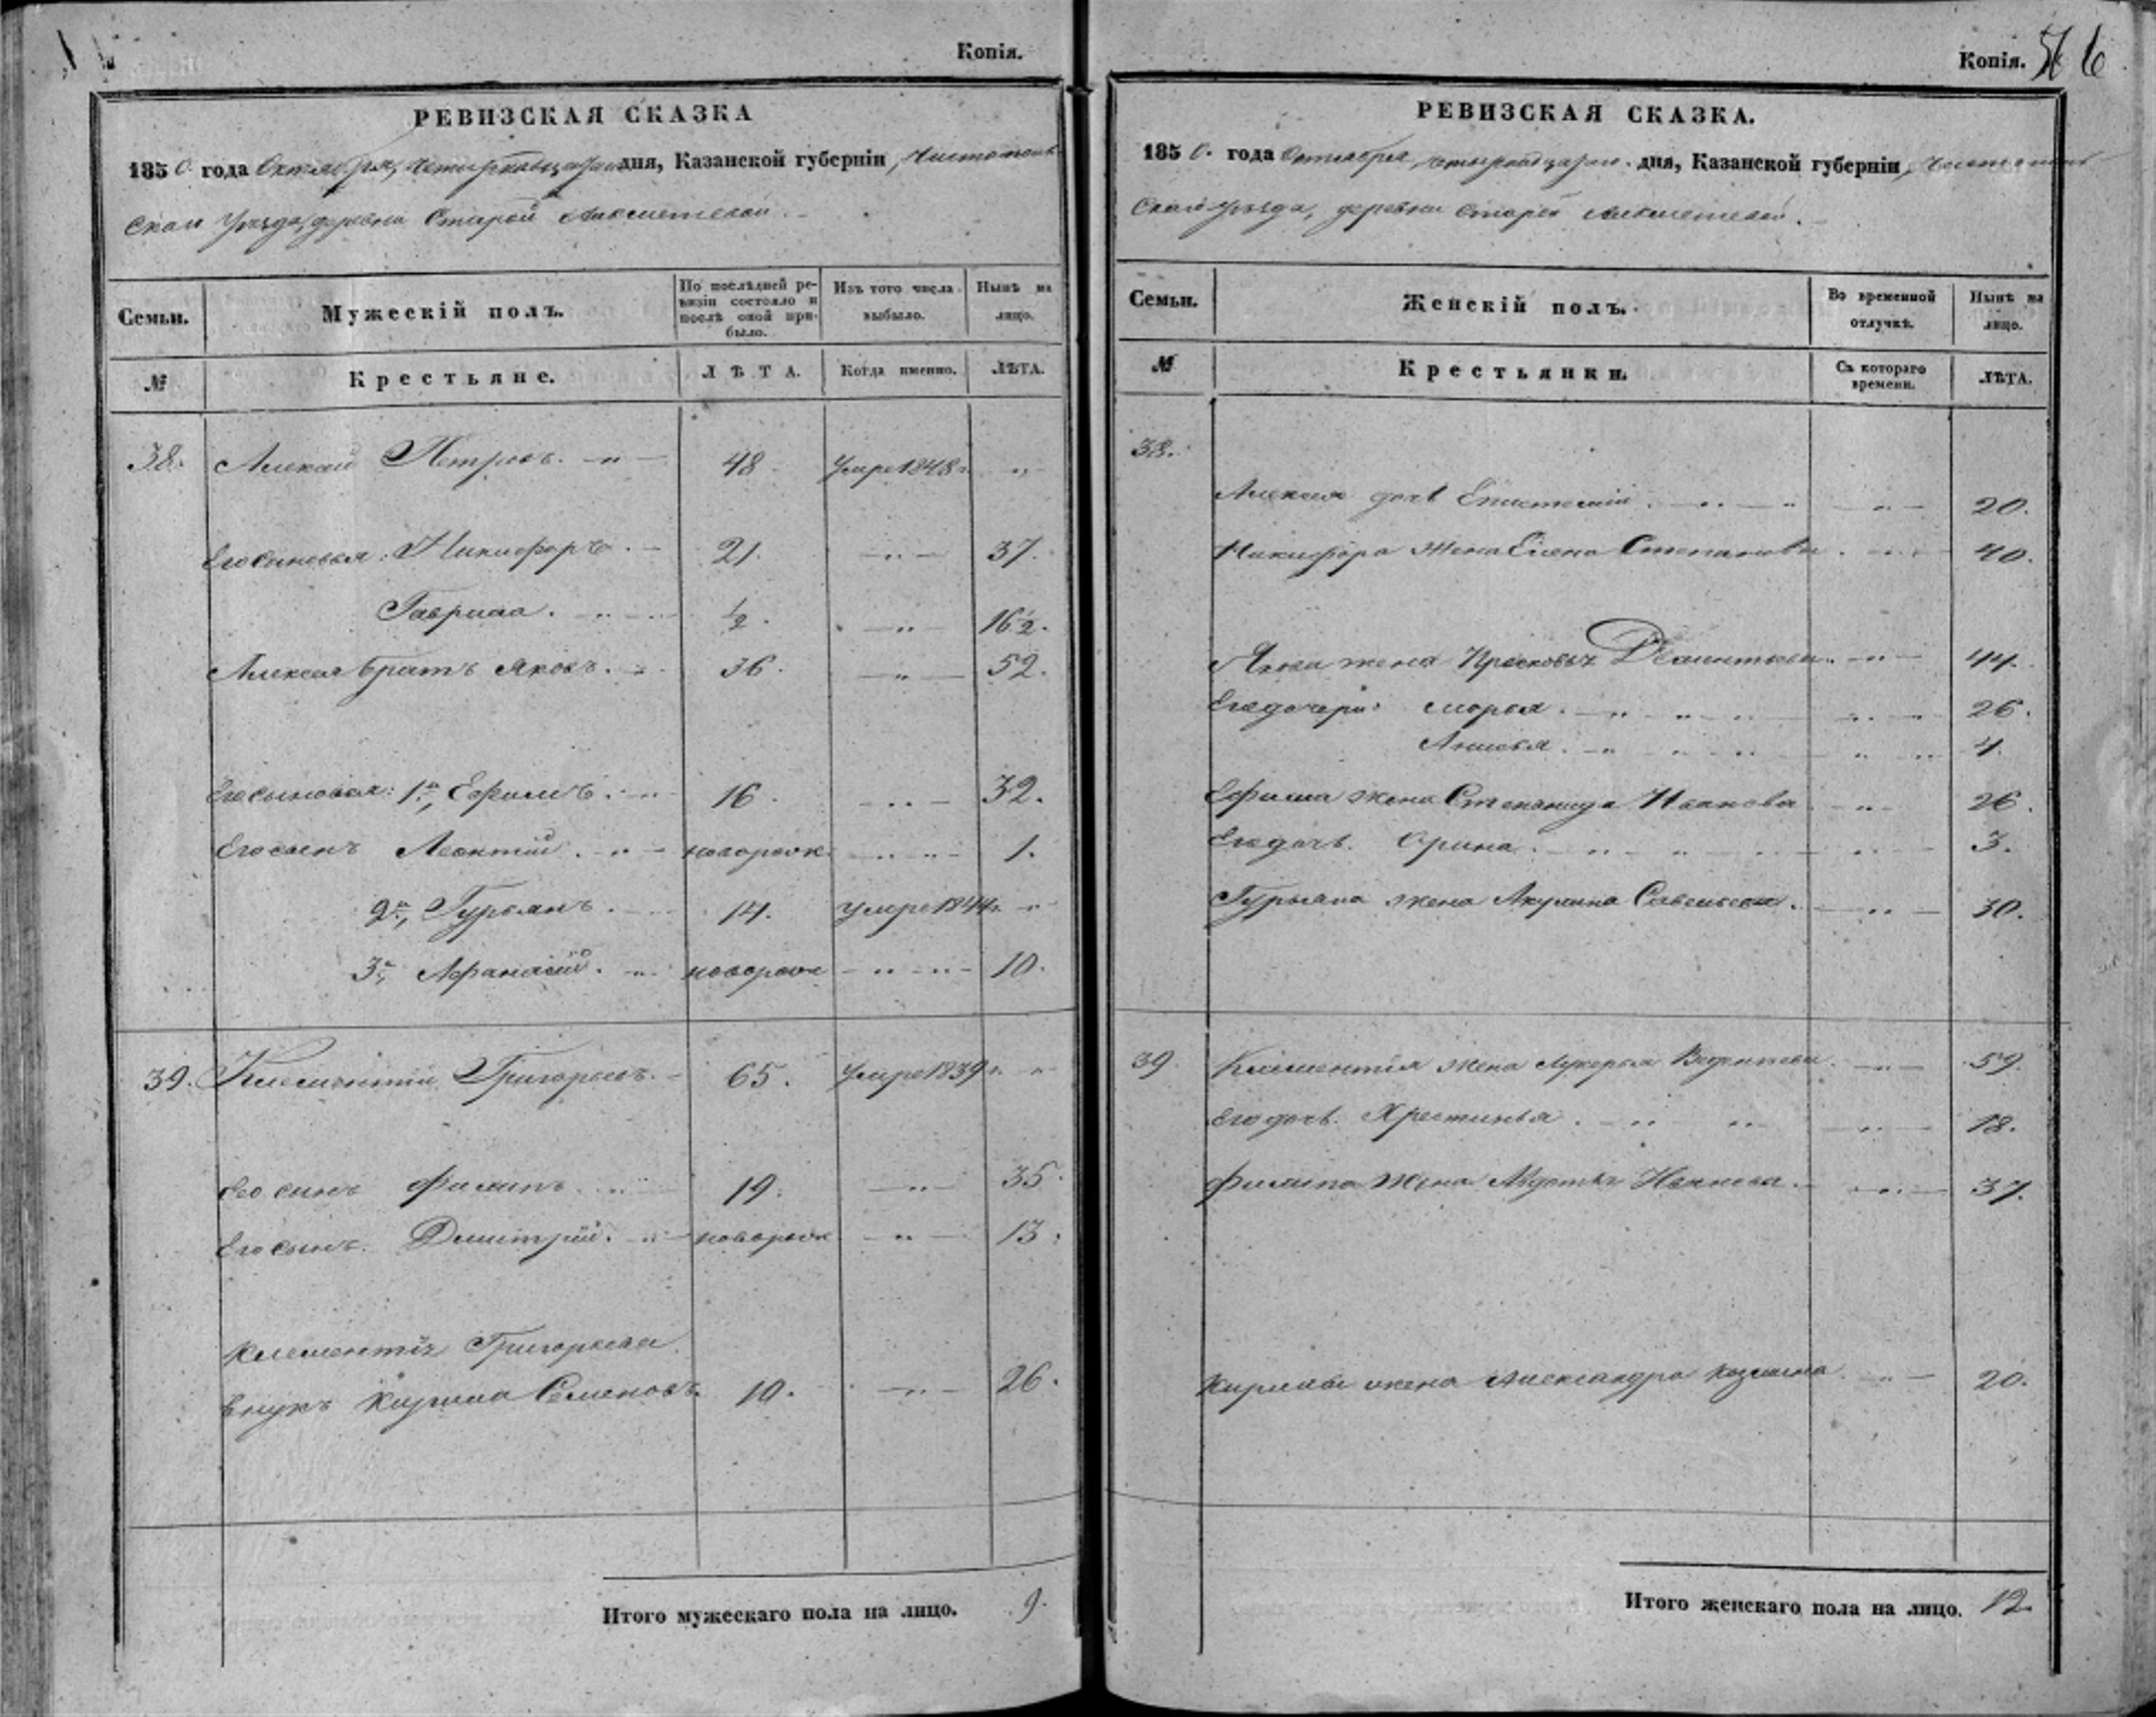 Копія.
РЕВИЗСКАЯ СКАЗКА
1850 года Октября, четырнадцатаго дня, Казанской губерніи, Чистополь
скаго Уѣзда, деревни Старой
Семьи.
Мужескій полъ.
По послѣдней ре-
визіи состояло и
послѣ оной при-
было.
Изъ того числа
выбыло.
Нынѣ на
лицо.
№
Крестьяне.
ЛѢТА.
Когда именно.
ЛѢТА.
38. Алексѣй Петровъ. 48 Умре 1848 г. "
Его сыновья: Никифоръ. 21. " 37.
Гаврила. ½. " 16½.
Алексѣя братъ Яковъ. 36. " 52.
Его сыновья: 1й, Ефимъ. 16. " 32.
Его сынъ Леонтій. новорож. " " 1.
2й, Гурьянъ. 14. Умре 1844 г. "
3й, Афанасій. новорож " " 10.
39. Клементій Григорьевъ. 65. Умре 1839 г. "
Его сынъ Филипъ. 19. " 35.
Его сынъ. Дмитрій. новорож " 13.
Клементія Григорьева
внукъ Кирила Семеновъ 10. " 26.
Итого мужескаго пола на лицо. 9.
Копія. 6
РЕВИЗСКАЯ СКАЗКА.
1850. года Октября, четырнадцатаго. дня, Казанской губерніи, Чистополь
скаго Уѣзда, деревни Старой
Семьи.
Женскій полъ.
Во временной
отлучкѣ.
Нынѣ на
лицо.
№
Крестьянки.
Съ котораго
времени.
ЛѢТА.
38.
Алексѣя дочь Епистимія. " 20.
Никифора жена Елена Степанова. " 40.
Якова жена Прасковья " 44.
Его дочери: Марья. " 26.
Анисья. " 4.
Ефима жена Степанида Иванова " 26.
Его дочь. Орина. " 3.
Гурьяна жена Акулина Савельева. " 30.
39. Клементія жена Лукерья " 59.
Его дочь. Хрестинья. " 18.
Филипа жена Авдотья Иванова. " 37.
Кирилы жена Александра Козмина. " 20.
Итого женскаго пола на лицо. 12.